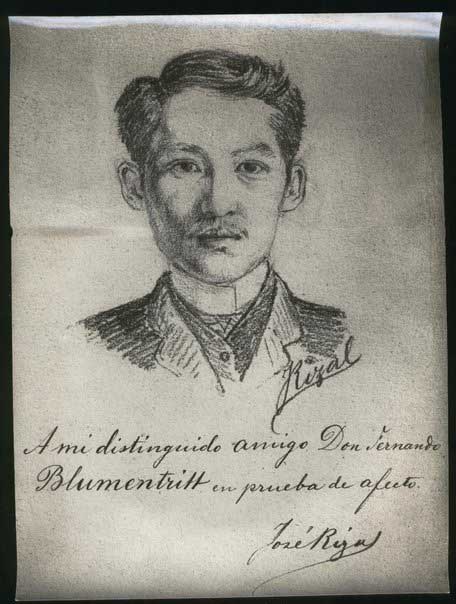 Rizal
A mi distinguido amigo Don Fernando
Blumentritt en prueba de afecto.
José Rizal